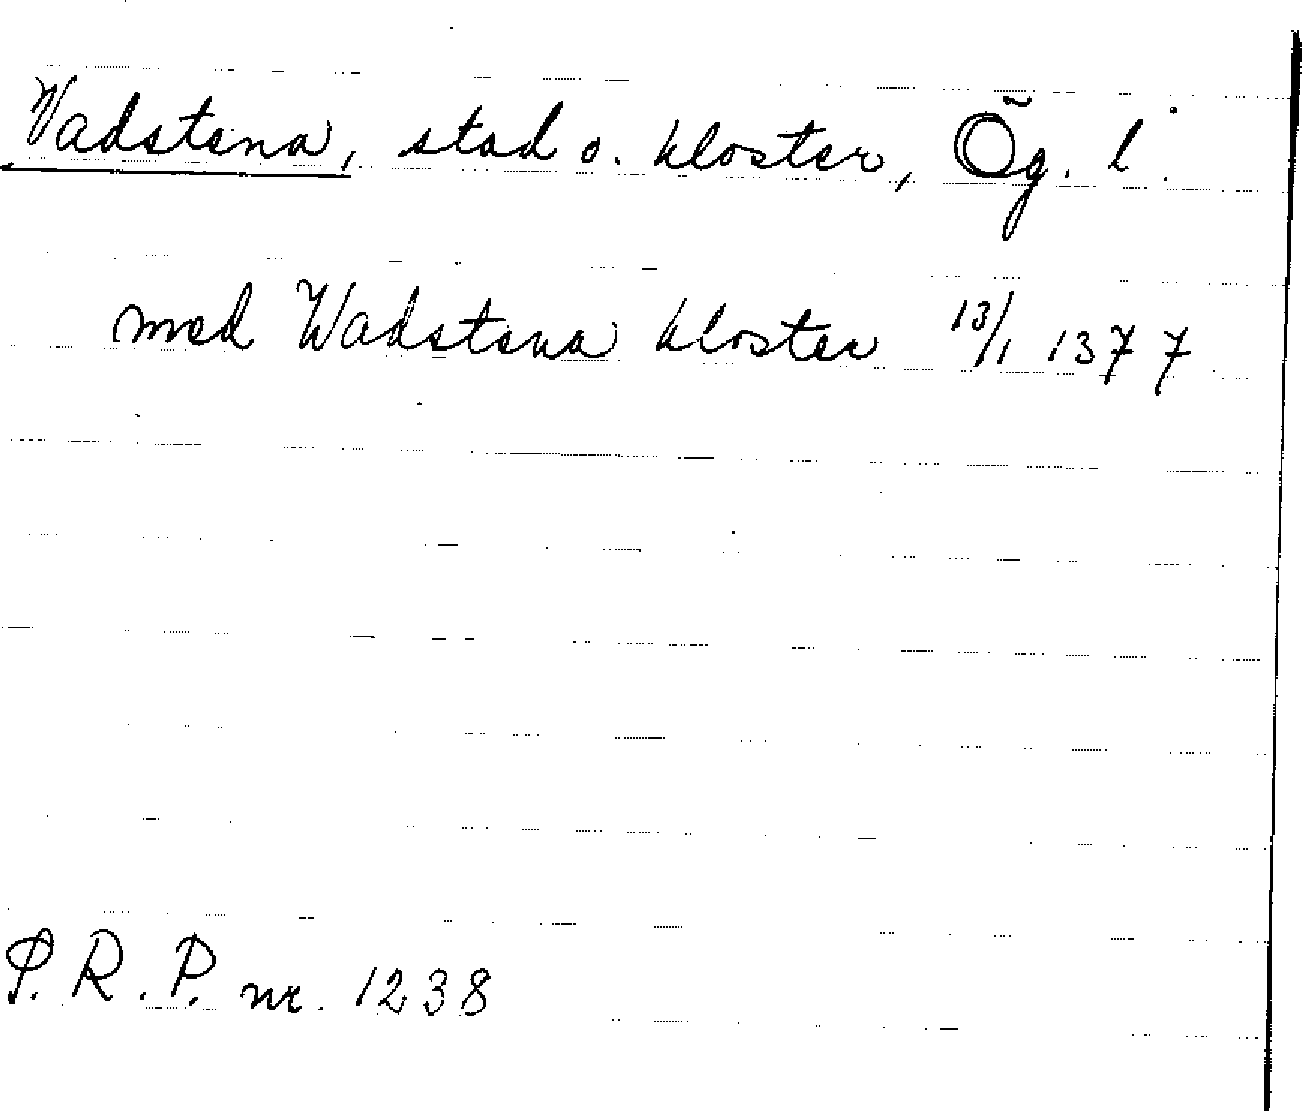 Vadstena, stad o. kloster, Ög. l.
med Wadstena kloster 13/1 1377
P.R.P. nr. 1238